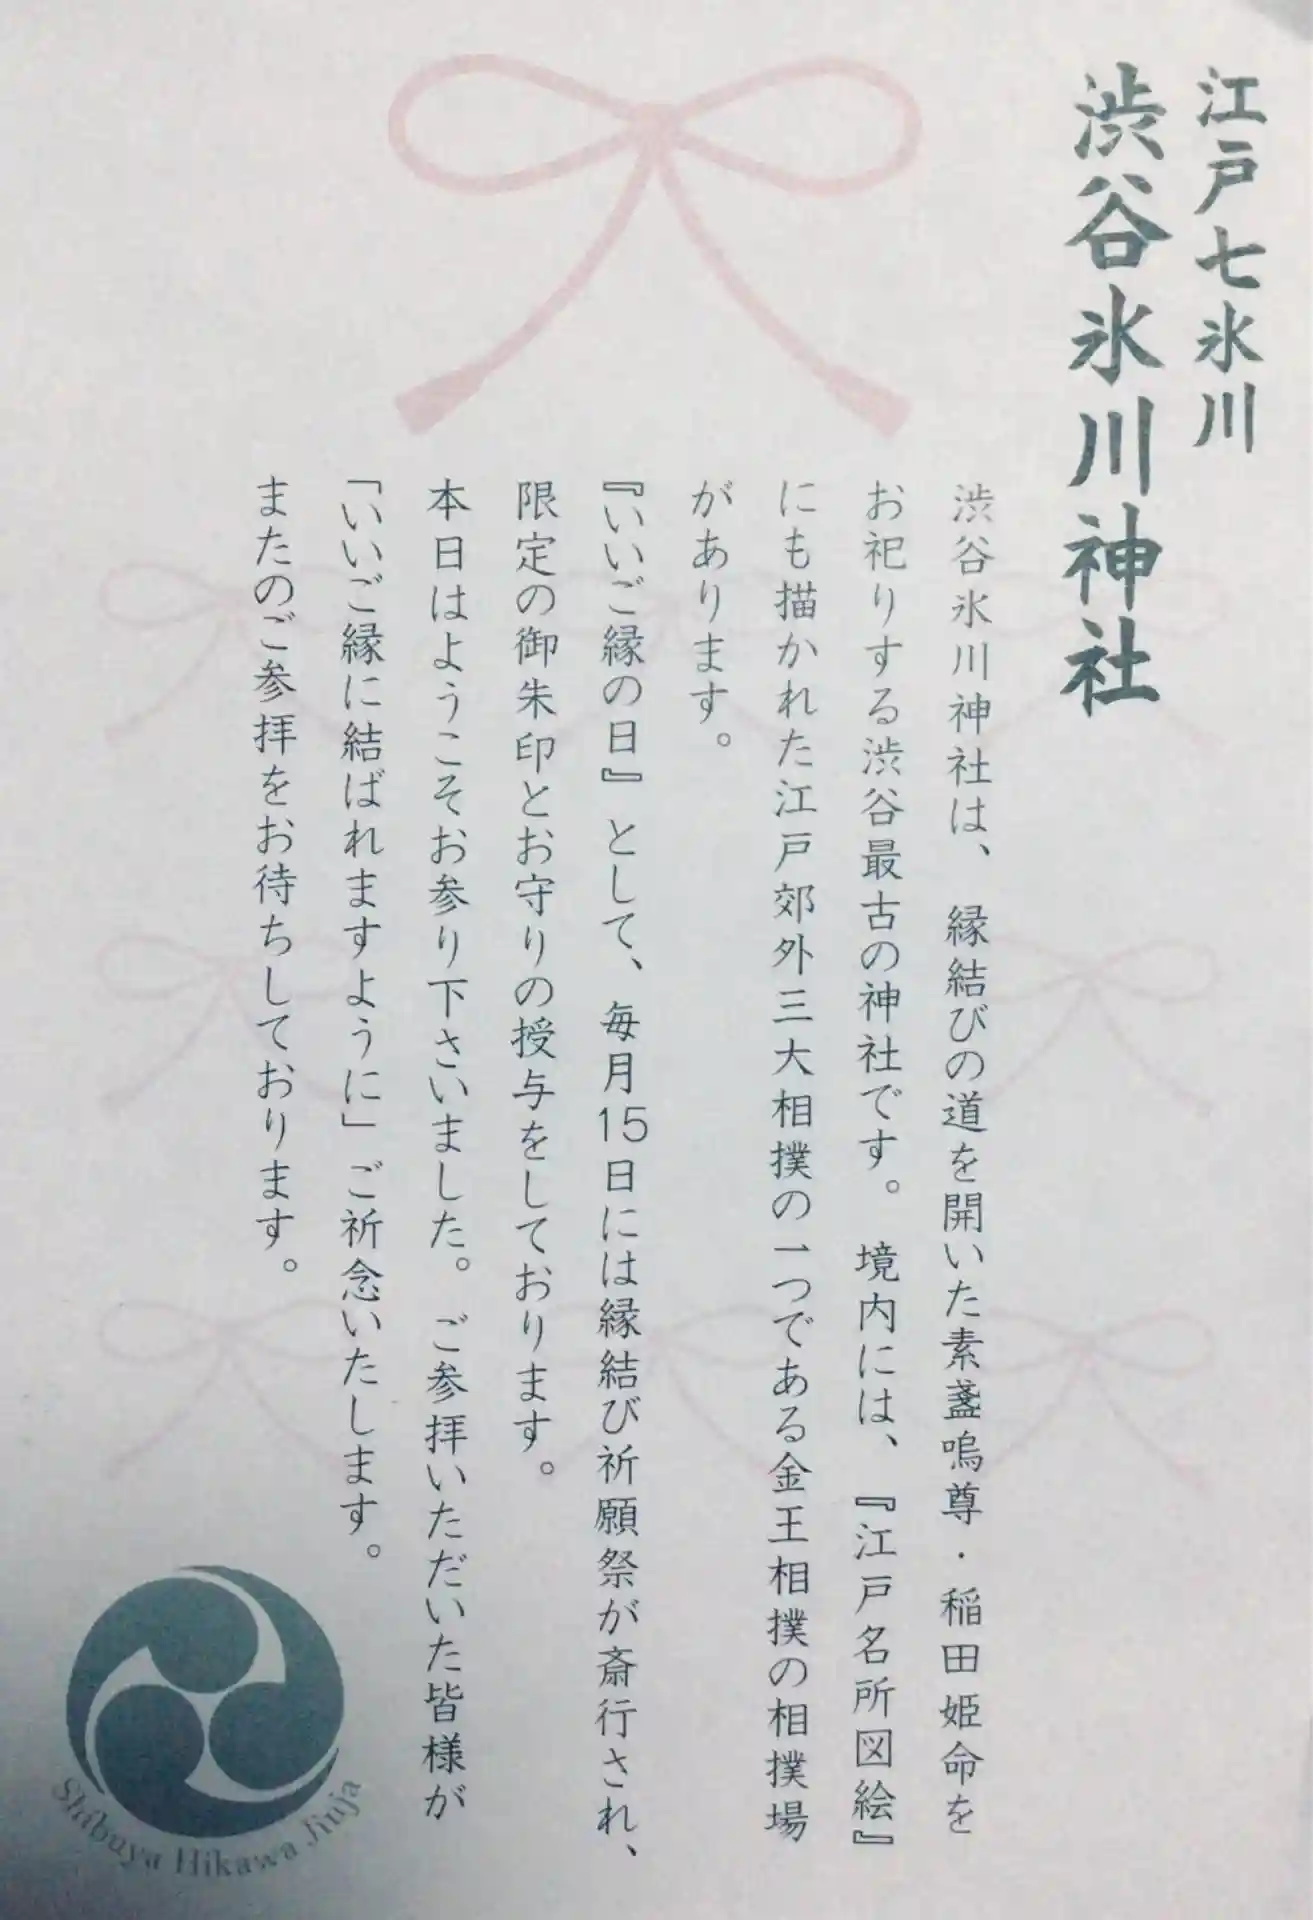 江戸七氷川
渋谷氷川神社
渋谷氷川神社は、縁結びの道を開いた素盞嗚尊・稲田姫命を
お祀りする渋谷最古の神社です。境内には、『江戸名所図絵』
にも描かれた江戸郊外三大相撲の一つである金王相撲の相撲場
があります。
『いいご縁の日』として、毎月15日には縁結び祈願祭が斎行され、
限定の御朱印とお守りの授与をしております。
本日はようこそお参り下さいました。ご参拝いただいた皆様が
「いいご縁に結ばれますように」ご祈念いたします。
またのご参拝をお待ちしております。
Shibuya Hikawa Jinja